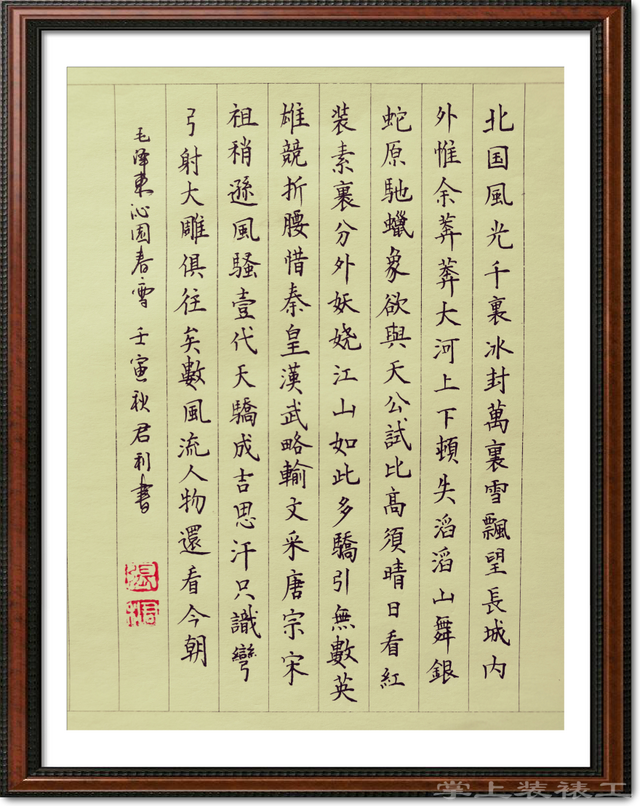 北国風光千裏冰封萬裏雪飄望長城内
外惟余莽莽大河上下頓失滔滔山舞銀
蛇原馳蠟象欲與天公試比高須晴日看紅
装素裹分外妖娆江山如此多驕引無數英
雄競折腰惜秦皇漢武略輸文采唐宗宋
祖稍遜風騷壹代天驕成吉思汗只識彎
弓射大雕俱往矣數風流人物還看今朝
毛泽東沁园春雪 壬寅秋君利書
掌上装裱工